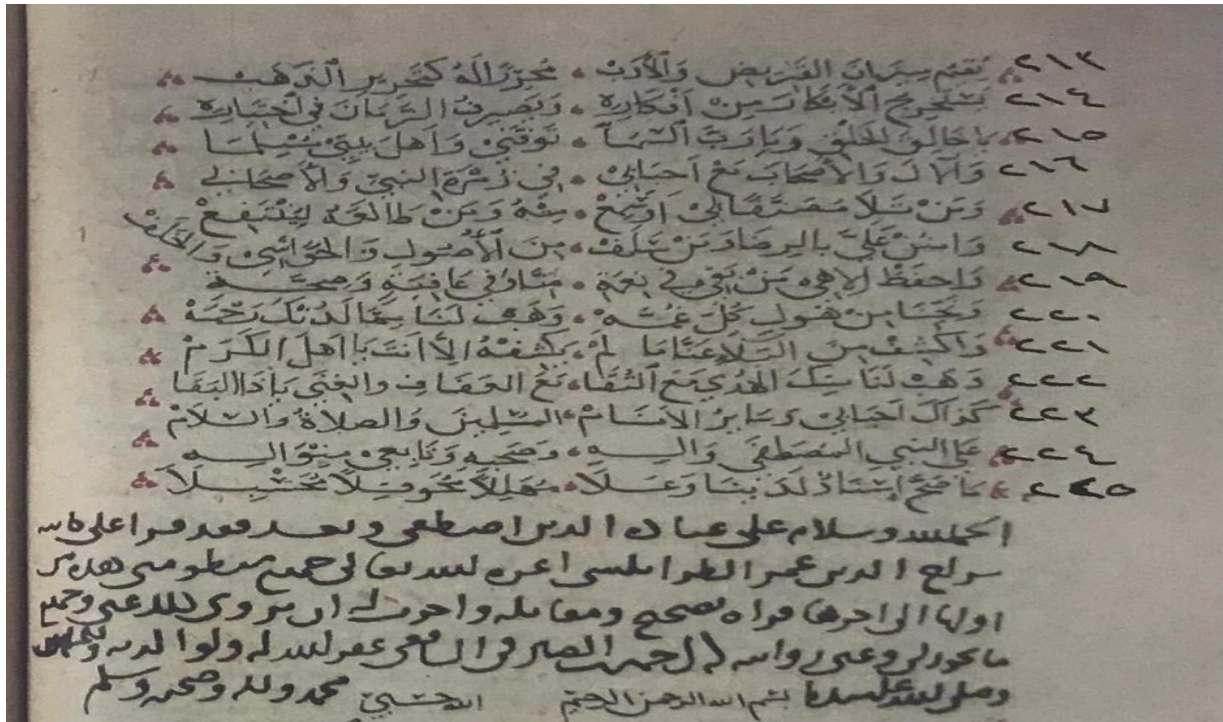 ٢١٣ نقيم ميزان القريض والأدب محررا له كتحرير الذهب
٢١٤ يستخرج الأبكار من أفكاره ويصرف الزمان في اختياره
٢١٥ يا خالق الخلق ويا رب السما توفني وأهل بيتي مسلما
٢١٦ والآل والأصحاب مع أحبابي في زمرة النبي والأصحاب
٢١٧ ومن تلا مصنفا لي أو سمع منه ومن طالعه لينتفع
٢١٨ وامنن علي بالرضا ومن سلف من الأصول والحواشي والخلف
٢١٩ واحفظ إلهي من بقي في نعمة منا وفي عافية وصحة
٢٢٠ ونجنا من هول كل غمة وهب لنا من لدنك رحمة
٢٢١ واكشف من البلاء عنا ما لم يكشفه إلا أنت يا أهل الكرم
٢٢٢ وهب لنا منك الهدى مع التقا مع العفاف والغنى يا ذا البقا
٢٢٣ كذاك أحبابي وسائر الأنام المسلمين والصلاة والسلام
٢٢٤ على النبي المصطفى وآله وصحبه وتابعي منواله
٢٢٥ ما صح إسناد لدينا وعلا مهللا محوقلا محسبلا
الحمد لله وسلام على عباده الذين اصطفى وبعد فقد قرأ علي
سراج الدين عمر الطرابلسي أعزه الله تعالى جميع منظومتي هذه من
أولها إلى آخرها قراءة تصحيح ومقابلة وأجزت له أن يروي ذلك عني وجميع
ما يجوز لي وعني روايته الصيرفي الشافعي غفر الله له ولوالديه
وصلى الله على سيدنا محمد وآله وصحبه وسلم
بسم الله الرحمن الرحيم الله حسبي